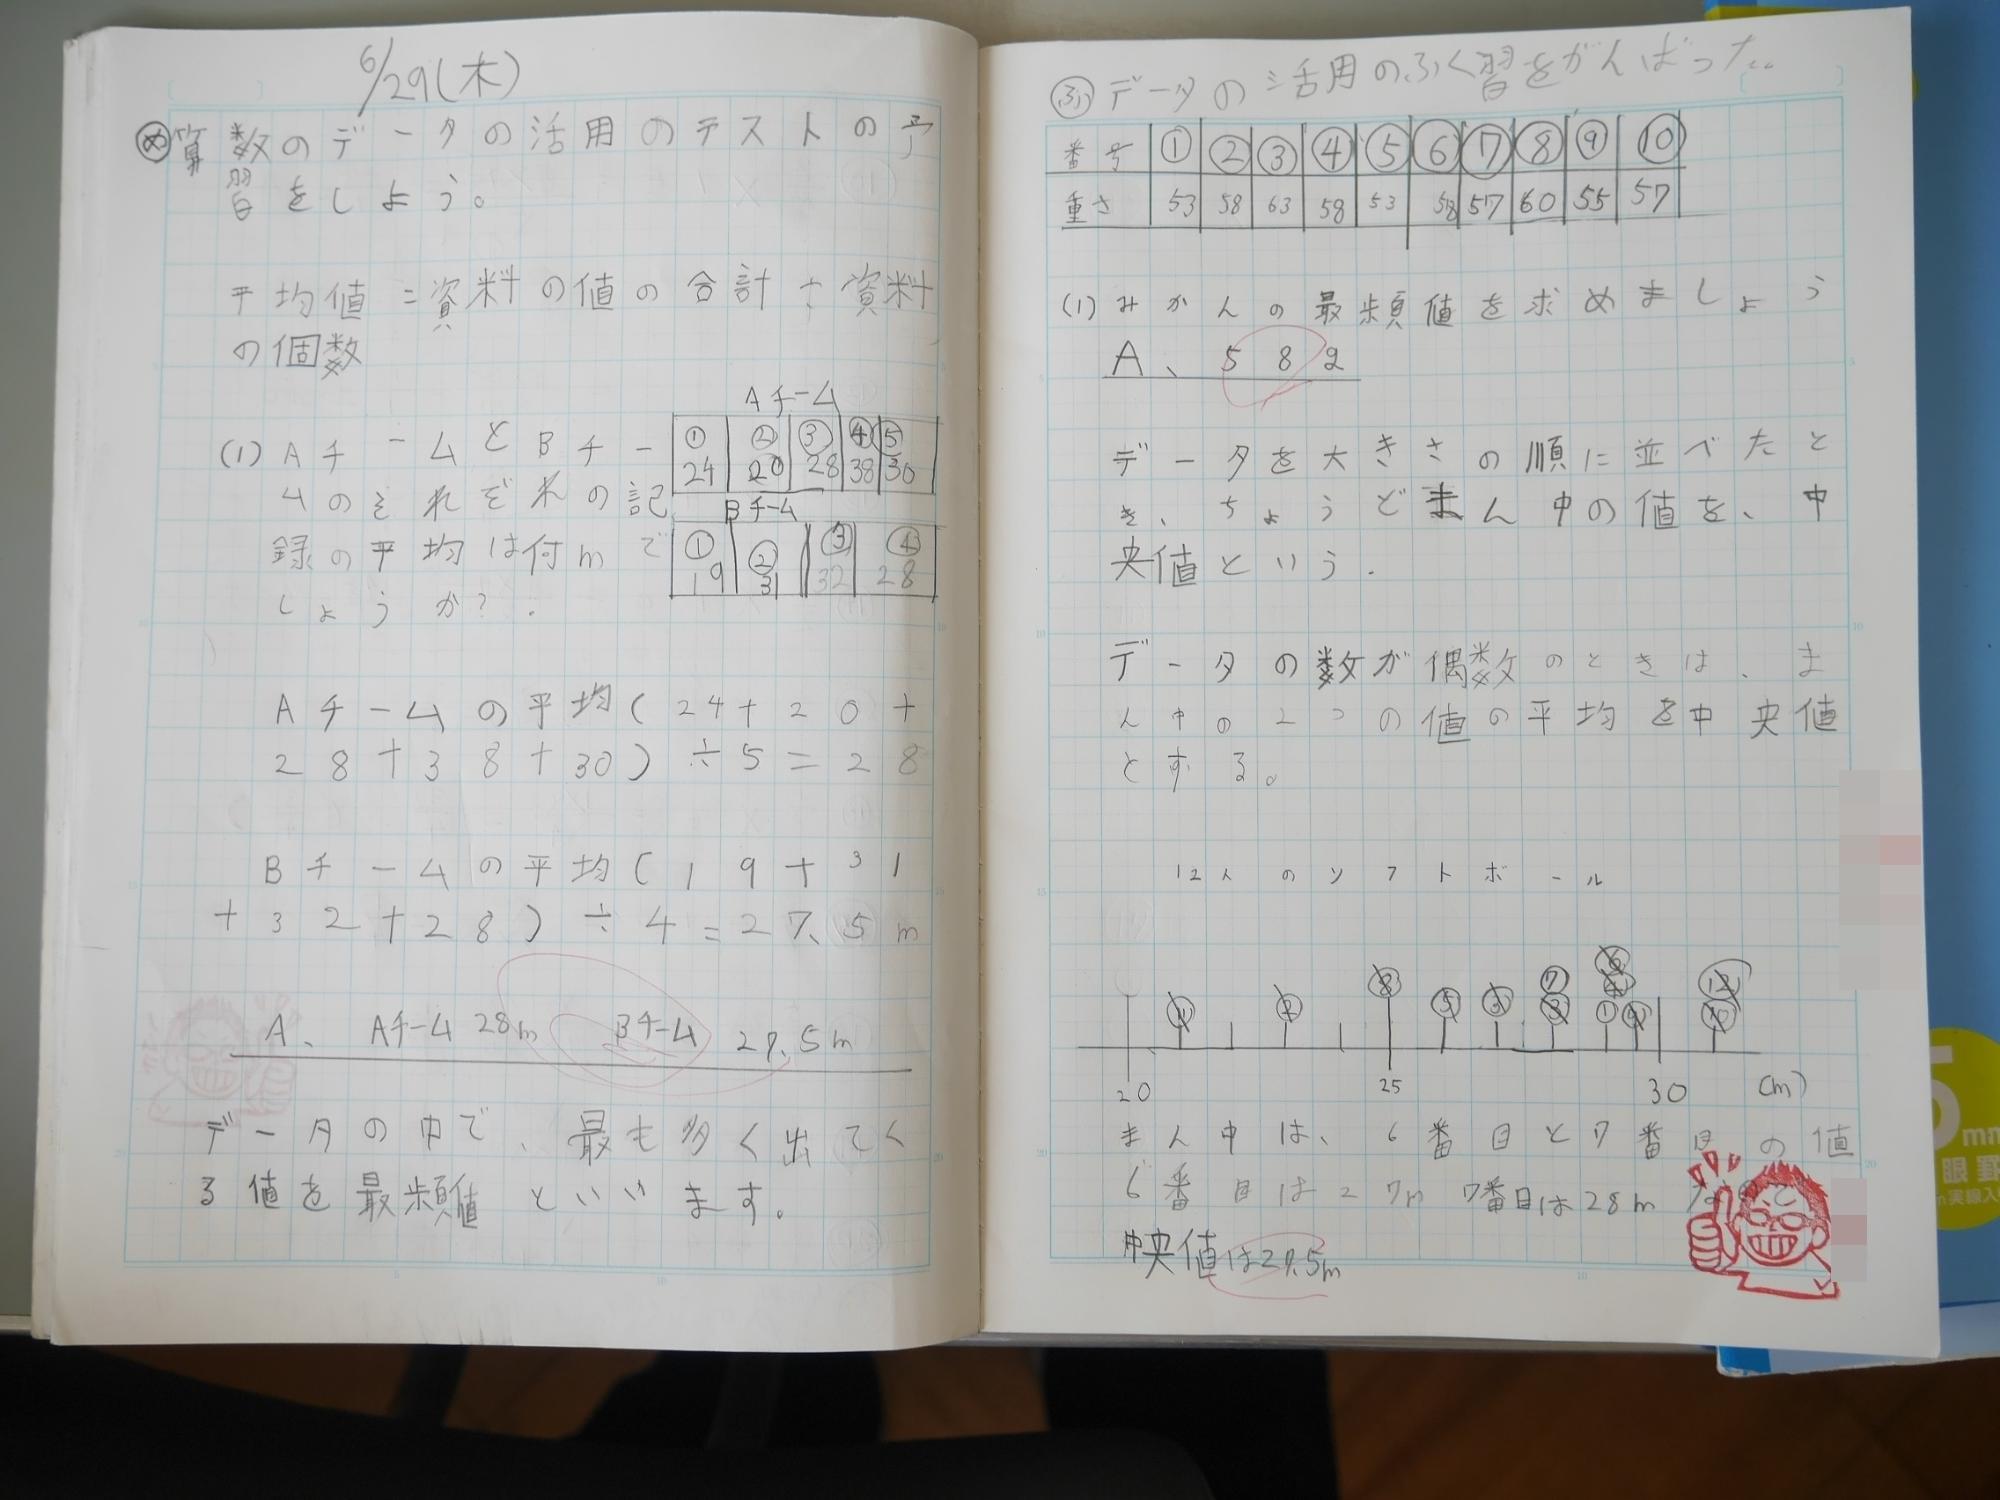 6/29(木)
め 算数のデータの活用のテストの予
習をしよう。
平均値=資料の値の合計÷資料
の個数
Aチーム
① ② ③ ④ ⑤
24 20 28 38 30
Bチーム
① ② ③ ④
19 31 32 28
(1) AチームとBチー
ムのそれぞれの記
録の平均は何mで
しょうか?.
Aチームの平均(24+20+
28+38+30)÷5=28
Bチームの平均(19+31
+32+28)÷4=27.5m
A、 Aチーム 28m Bチーム 27.5m
データの中で、最も多く出てく
る値を最頻値といいます。
ふ データの活用のふく習をがんばった..
番号 ① ② ③ ④ ⑤ ⑥ ⑦ ⑧ ⑨ ⑩
重さ 53 58 63 58 53 58 57 60 55 57
(1) みかんの最頻値を求めましょう
A、 58g
データを大きさの順に並べたと
き、ちょうどまん中の値を、中
央値という.
データの数が偶数のときは、ま
ん中の2つの値の平均を中央値
とする。
12人のソフトボール
20 25 30 (m)
まん中は、6番目と7番目の値
6番目は27m 7番目は28m
中央値は27.5m
5mm